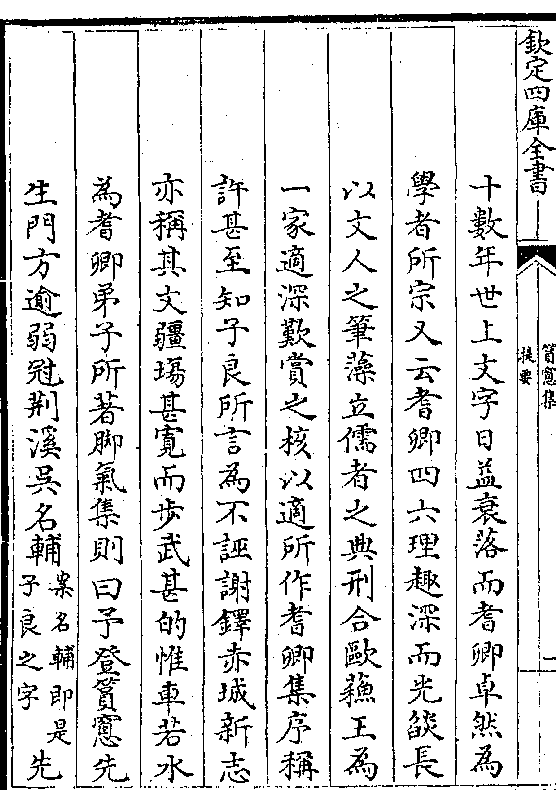 欽定四庫全書
篔窻集
提要
十數年世上文字日益衰落而耆卿卓然為
學者所宗又云耆卿四六理趣深而光燄長
以文人之筆藻立儒者之典刑合歐蘓王為
一家適深歎賞之核以適所作耆卿集序稱
許甚至知子良所言為不誣謝鐸赤城新志
亦稱其文疆塲甚寛而步武甚的惟車若水
為耆卿弟子所著脚氣集則曰予登篔窻先
生門方逾弱冠荆溪吳名輔案名輔即是子良之字先